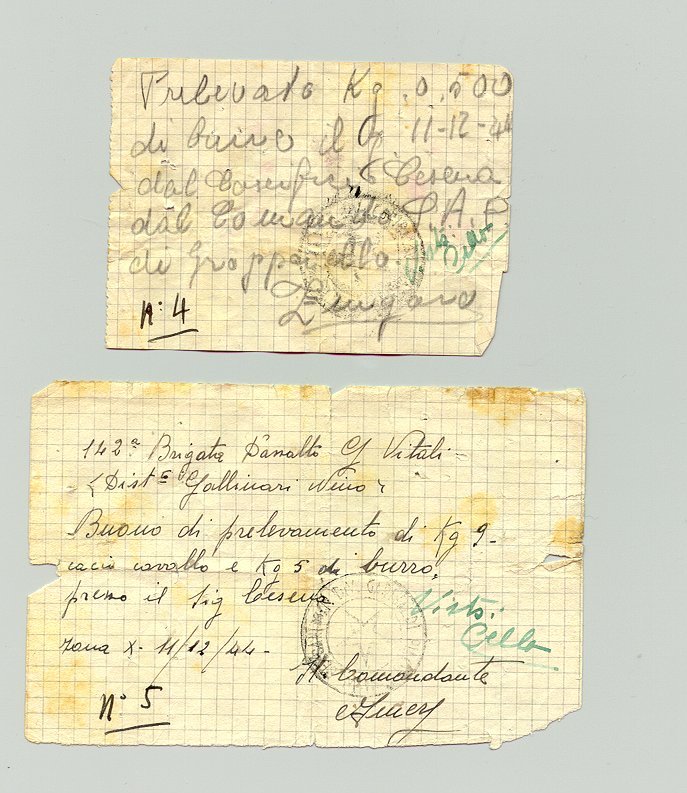 Prelevato Kg. 0.500
di burro il 11-12-44
dal Caseificio Cesena
dal Comando S.A.P
di Gropparello.
Visto
Cello
Zingaro
N° 4
142ª Brigata D'assalto G Vitali -
(Distº Gallinari Nino)
Buono di prelevamento di Kg 9 -
cacio cavallo e Kg 5 di burro,
presso il sig Cesena
Visto:
Cello
zona X - 11/12/44 -
Il Comandante
N° 5